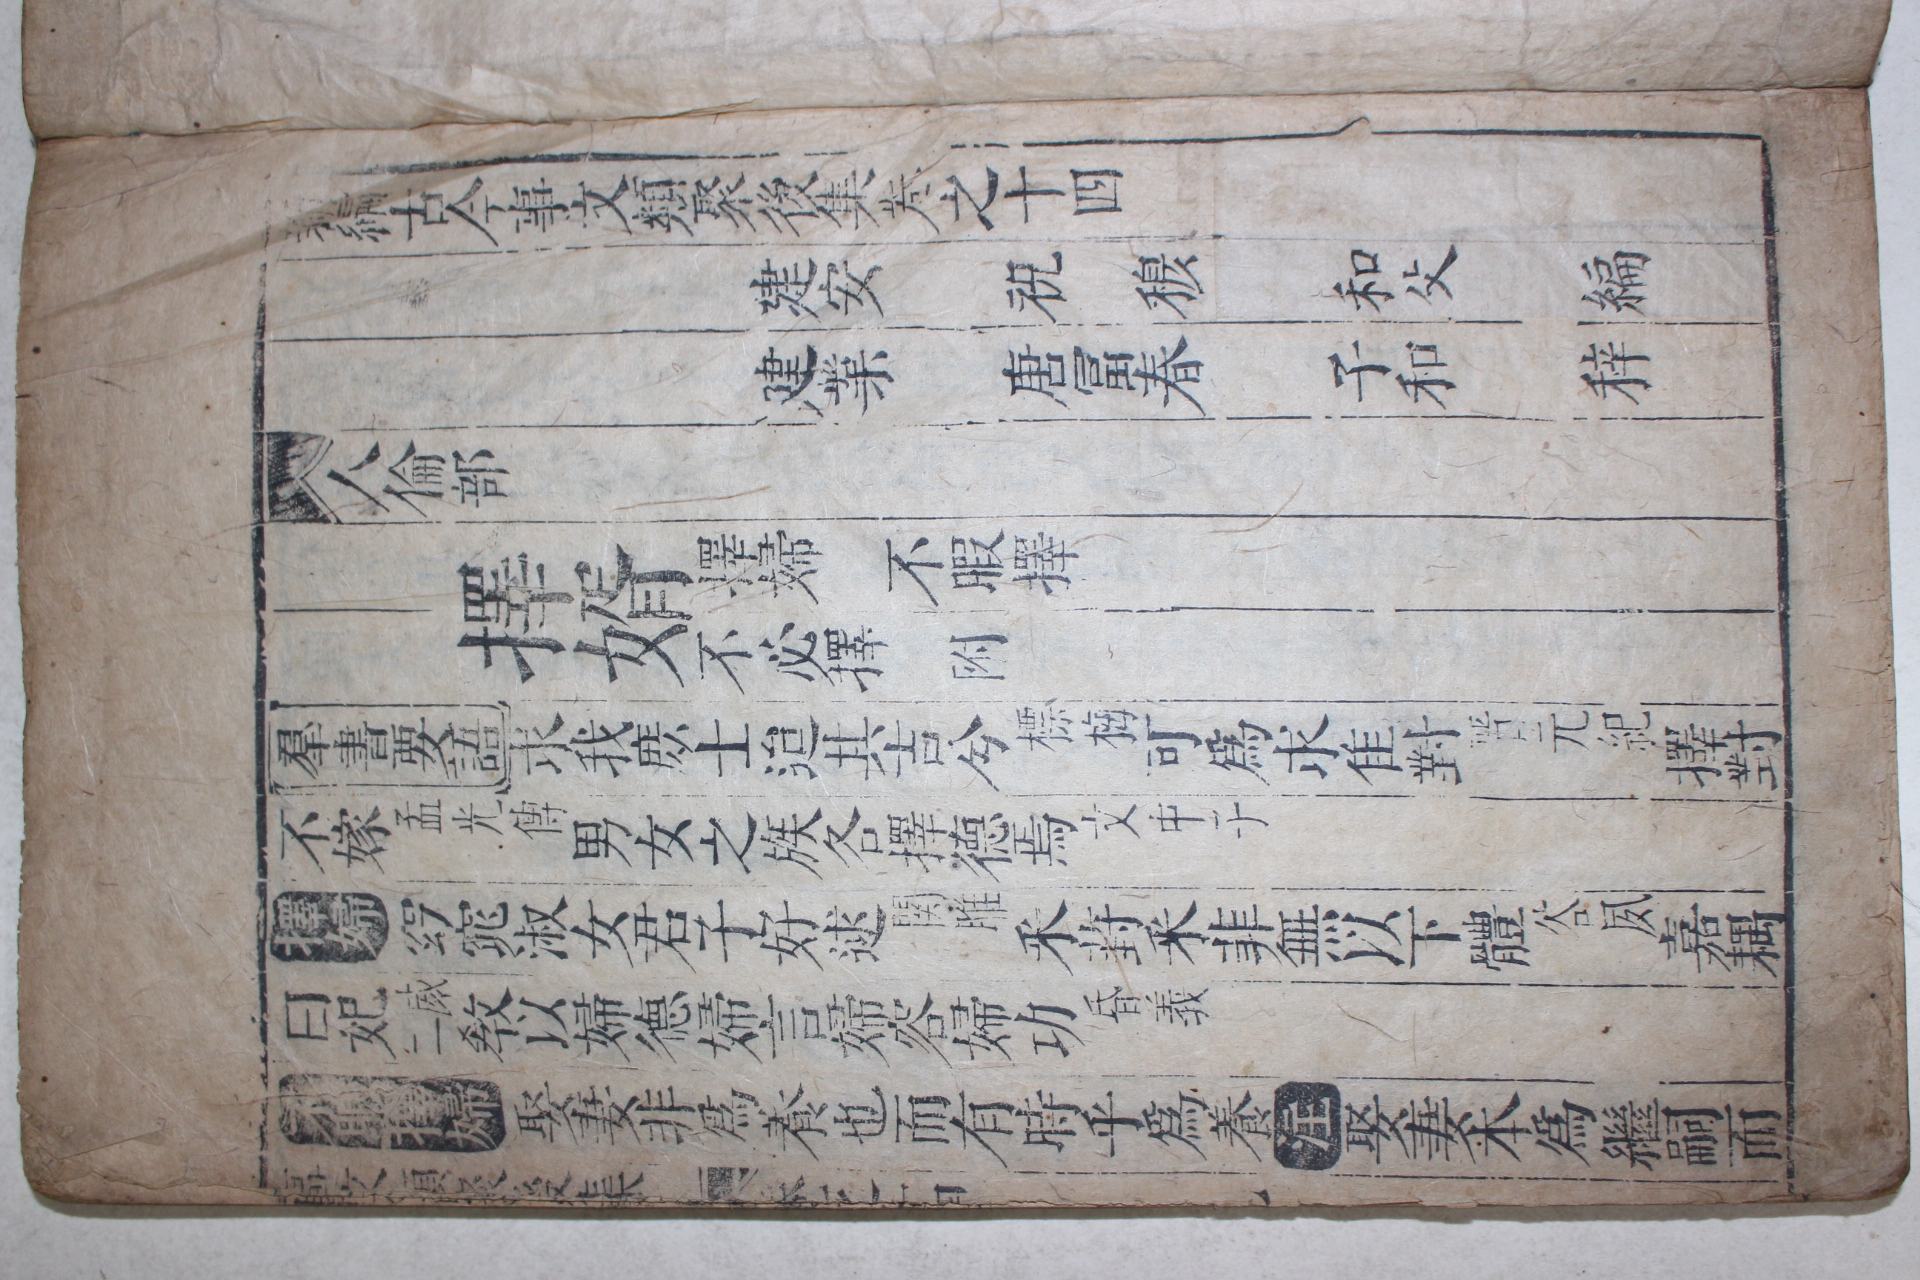 新編古今事文類聚後集卷之十四
建安 祝 穆 和父 編
建業 唐富春 子和 梓
人倫部
擇壻 擇婦 不暇擇
不必擇 附
羣書要語 求我庶士迨其吉兮 摽梅 可爲求佳對 晋元紀 擇對
不嫁 孟光傳 男女之族各擇德焉 文中子
擇婦 窈窕淑女君子好逑 關雎 采葑采菲無以下體 谷風 嘉耦
曰妃 教以婦德婦言婦容婦功 昏義
不暇擇婦 娶妻非爲養也而有時乎爲養 注 娶妻本爲繼嗣而
事文類聚後集